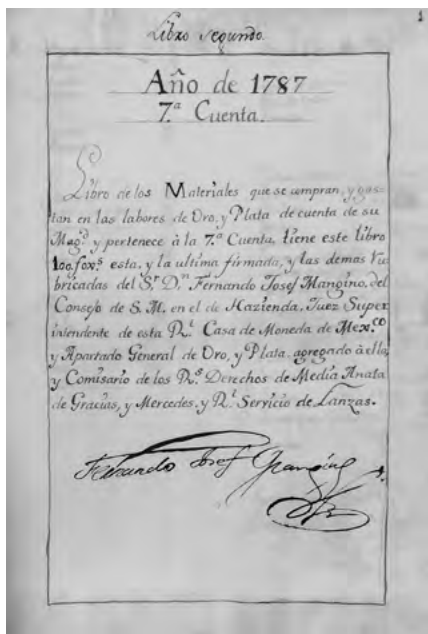 1
Libro segundo.
Año de 1787
7.ª Cuenta.
Libro de los Materiales que se compran, y gas-
tan en las labores de Oro, y Plata de cuenta de su
Mag.d y pertenece à la 7.ª Cuenta, tiene este libro
100 fox.s esta, y la ultima firmada, y las demas Ru
bricadas del S.r D.n Fernando Josef Mangino, del
Consejo de S. M. en el de Hazienda, Juez Super
intendente de esta R.l Casa de Moneda de Mex.co
y Apartado General de Oro, y Plata, agregado à ella,
y Comisario de los R.s Derechos de Media Anata
de Gracias, y Mercedes, y R.l Servicio de Lanzas.
Fernando Josef Mangino